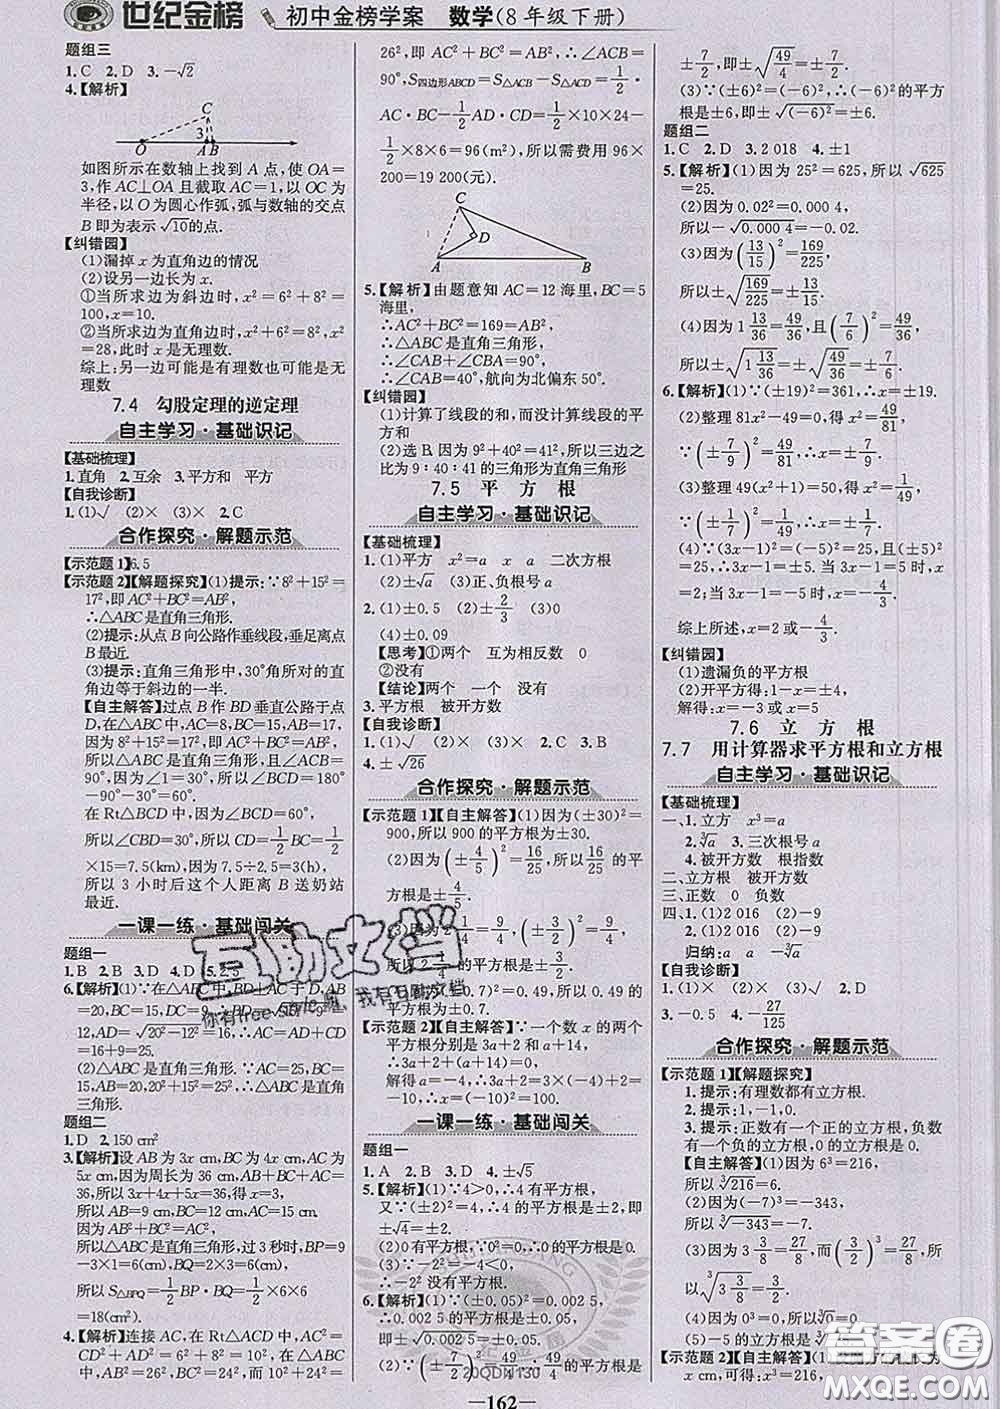 世纪金榜 初中金榜学案 数学(8年级下册)
题组三
1.C 2.D 3.-√2
4.【解析】
C
3
O A B
如图所示在数轴上找到A点,使OA=
3,作AC⊥OA且截取AC=1,以OC为
半径,以O为圆心作弧,弧与数轴的交点
B即为表示√10的点.
【纠错园】
(1)漏掉x为直角边的情况
(2)设另一边长为x.
①当所求边为斜边时,x²=6²+8²=
100,x=10.
②当所求边为直角边时,x²+6²=8²,x²
=28,此时x是无理数.
综上:另一边可能是有理数也可能是无
理数
7.4 勾股定理的逆定理
自主学习·基础识记
【基础梳理】
1.直角 2.互余 3.平方和 平方
【自我诊断】
1.(1)√ (2)× (3)× 2.C
合作探究·解题示范
【示范题1】6.5
【示范题2】【解题探究】(1)提示:∵8²+15²=
17²,即AC²+BC²=AB²,
∴△ABC是直角三角形.
(2)提示:从点B向公路作垂线段,垂足离点
B最近.
(3)提示:直角三角形中,30°角所对的直
角边等于斜边的一半.
【自主解答】过点B作BD垂直公路于点
D,在△ABC中,AC=8,BC=15,AB=17,
因为8²+15²=17²,所以△ABC是直角三
角形,∠ACB=90°,所以∠BCD=180°
-90°-30°=60°.
在Rt△BCD中,因为∠BCD=60°,
所以∠CBD=30°,所以CD=1/2BC=1/2
×15=7.5(km),因为7.5÷2.5=3(h),
所以3小时后这个人距离B送奶站
最近.
一课一练·基础闯关
题组一
1.B 2.B 3.D 4.D 5.2.5
6.【解析】(1)∵在△ABC中,BD⊥AC于D,AB
=20,BC=15,DC=9,∴BD=√15²-9²=
12,AD=√20²-12²=16,∴AC=AD+CD
=16+9=25.
(2)△ABC是直角三角形.∵AC=25,BC=
15,AB=20,20²+15²=25²,∴△ABC是直
角三角形.
题组二
1.D 2.150 cm²
3.【解析】设AB为3x cm,BC为4x cm,AC为
5x cm,因为周长为36 cm,AB+BC+AC=36,
所以3x+4x+5x=36,得x=3,
所以AB=9 cm,BC=12 cm,AC=15 cm.
因为AB²+BC²=AC²,
所以△ABC是直角三角形,过3秒时,BP=9
-3×1=6(cm),BQ=2×3=6(cm),
所以S△BPQ=1/2BP·BQ=1/2×6×6
=18(cm²).
4.【解析】连接AC,在Rt△ACD中,AC²=
CD²+AD²=6²+8²=10²,在△ABC中,
AB²=26²,BC²=24²,而10²+24²=
26²,即AC²+BC²=AB²,∴∠ACB=
90°,S四边形ABCD=S△ACB-S△ACD=1/2
·AC·BC-1/2AD·CD=1/2×10×24-
1/2×8×6=96(m²),所以需费用96×
200=19 200(元).
C
D
A B
5.【解析】由题意知AC=12海里,BC=5
海里,
∴AC²+BC²=169=AB²,
∴△ABC是直角三角形,
∴∠CAB+∠CBA=90°,
∴∠CAB=40°,航向为北偏东50°.
【纠错园】
(1)计算了线段的和,而没计算线段的平
方和
(2)选B.因为9²+40²=41²,所以三边之
比为9∶40∶41的三角形为直角三角形
7.5 平方根
自主学习·基础识记
【基础梳理】
1.(1)平方 x²=a x a 二次方根
(2)±√a (3)正、负根号a
2.(1)±0.5 (2)±2/3 (3)0
(4)±0.09
【思考】①两个 互为相反数 0
②没有
【结论】两个 一个 没有
3.平方根 被开方数
【自我诊断】
1.(1)√ (2)× (3)× 2.C 3.B
4.±√26
合作探究·解题示范
【示范题1】【自主解答】(1)因为(±30)²=
900,所以900的平方根为±30.
(2)因为(±4/5)²=16/25,所以16/25的平
方根是±4/5.
(3)因为2 1/4=9/4,(±3/2)²=9/4,
所以2 1/4的平方根是±3/2.
(4)因为(±0.7)²=0.49,所以0.49
的平方根为±0.7.
【示范题2】【自主解答】∵一个数x的两个
平方根分别是3a+2和a+14,
∴3a+2+(a+14)=0,
解得a=-4,∴3a+2=3×(-4)+2=
-10,∴x=(-10)²=100.
一课一练·基础闯关
题组一
1.A 2.B 3.D 4.±√5
5.【解析】(1)∵4>0,∴4有平方根,
又∵(±2)²=4,∴4的平方根是±2,即
±√4=±2.
(2)0有平方根,∵0²=0,∴0的平方根是0.
(3)∵-2²=-4<0,
∴-2²没有平方根.
6.【解析】(1)∵(±0.05)²=0.002 5,
∴0.002 5的平方根是±0.05,
即±√0.002 5=±0.05.
(2)∵(±7/2)²=49/4,∴49/4的平方根是
±7/2,即±√49/4=±7/2.
(3)∵(±6)²=(-6)²,∴(-6)²的平方
根是±6,即±√(-6)²=±6.
题组二
1.C 2.D 3.2 018 4.±1
5.【解析】(1)因为25²=625,所以√625
=25.
(2)因为0.02²=0.000 4,
所以-√0.000 4=-0.02.
(3)因为(13/15)²=169/225,
所以±√169/225=±13/15.
(4)因为1 13/36=49/36,且(7/6)²=49/36,
所以±√1 13/36=±√49/36=±7/6.
6.【解析】(1)∵(±19)²=361,∴x=±19.
(2)整理81x²-49=0,得x²=49/81,
∵(±7/9)²=49/81,∴x=±7/9.
(3)整理49(x²+1)=50,得x²=1/49,
∵(±1/7)²=1/49,∴x=±1/7.
(4)∵(3x-1)²=(-5)²=25,(±5)²
=25,∴3x-1=±5,当3x-1=5时,x
=2;当3x-1=-5时,x=-4/3.
综上所述,x=2或-4/3.
【纠错园】
(1)遗漏负的平方根
(2)开平方得:1-x=±4,
解得:x=-3或x=5
7.6 立方根
7.7 用计算器求平方根和立方根
自主学习·基础识记
【基础梳理】
一、1.立方 x³=a
2.³√a 3.三次根号
4.被开方数 根指数
二、立方根 被开方数
三、正数 0 负数
四、1.(1)2 016 (2)-9
2.(1)2 016 (2)-9
归纳:a a -³√a
【自我诊断】
1.(1)× (2)× (3)√ (4)√ 2.D
3.-0.5 4.-27/125
合作探究·解题示范
【示范题1】【解题探究】
1.提示:有理数都有立方根.
2.提示:1,-1,0.
3.提示:正数有一个正的立方根,负数
有一个负的立方根,0的立方根是0.
【自主解答】(1)因为6³=216,
所以³√216=6.
(2)因为(-7)³=-343,
所以³√-343=-7.
(3)因为3 3/8=27/8,而(3/2)³=27/8,所
以³√3 3/8=3/2.
(4)因为0³=0,所以³√0=0.
(5)-5的立方根是³√-5.
【示范题2】【自主解答】(1)设
x cm,可得:x³=216,
162
互助文档
你有free style嘛，我有互助文档
20QDM130
答案圈
MXQE.COM